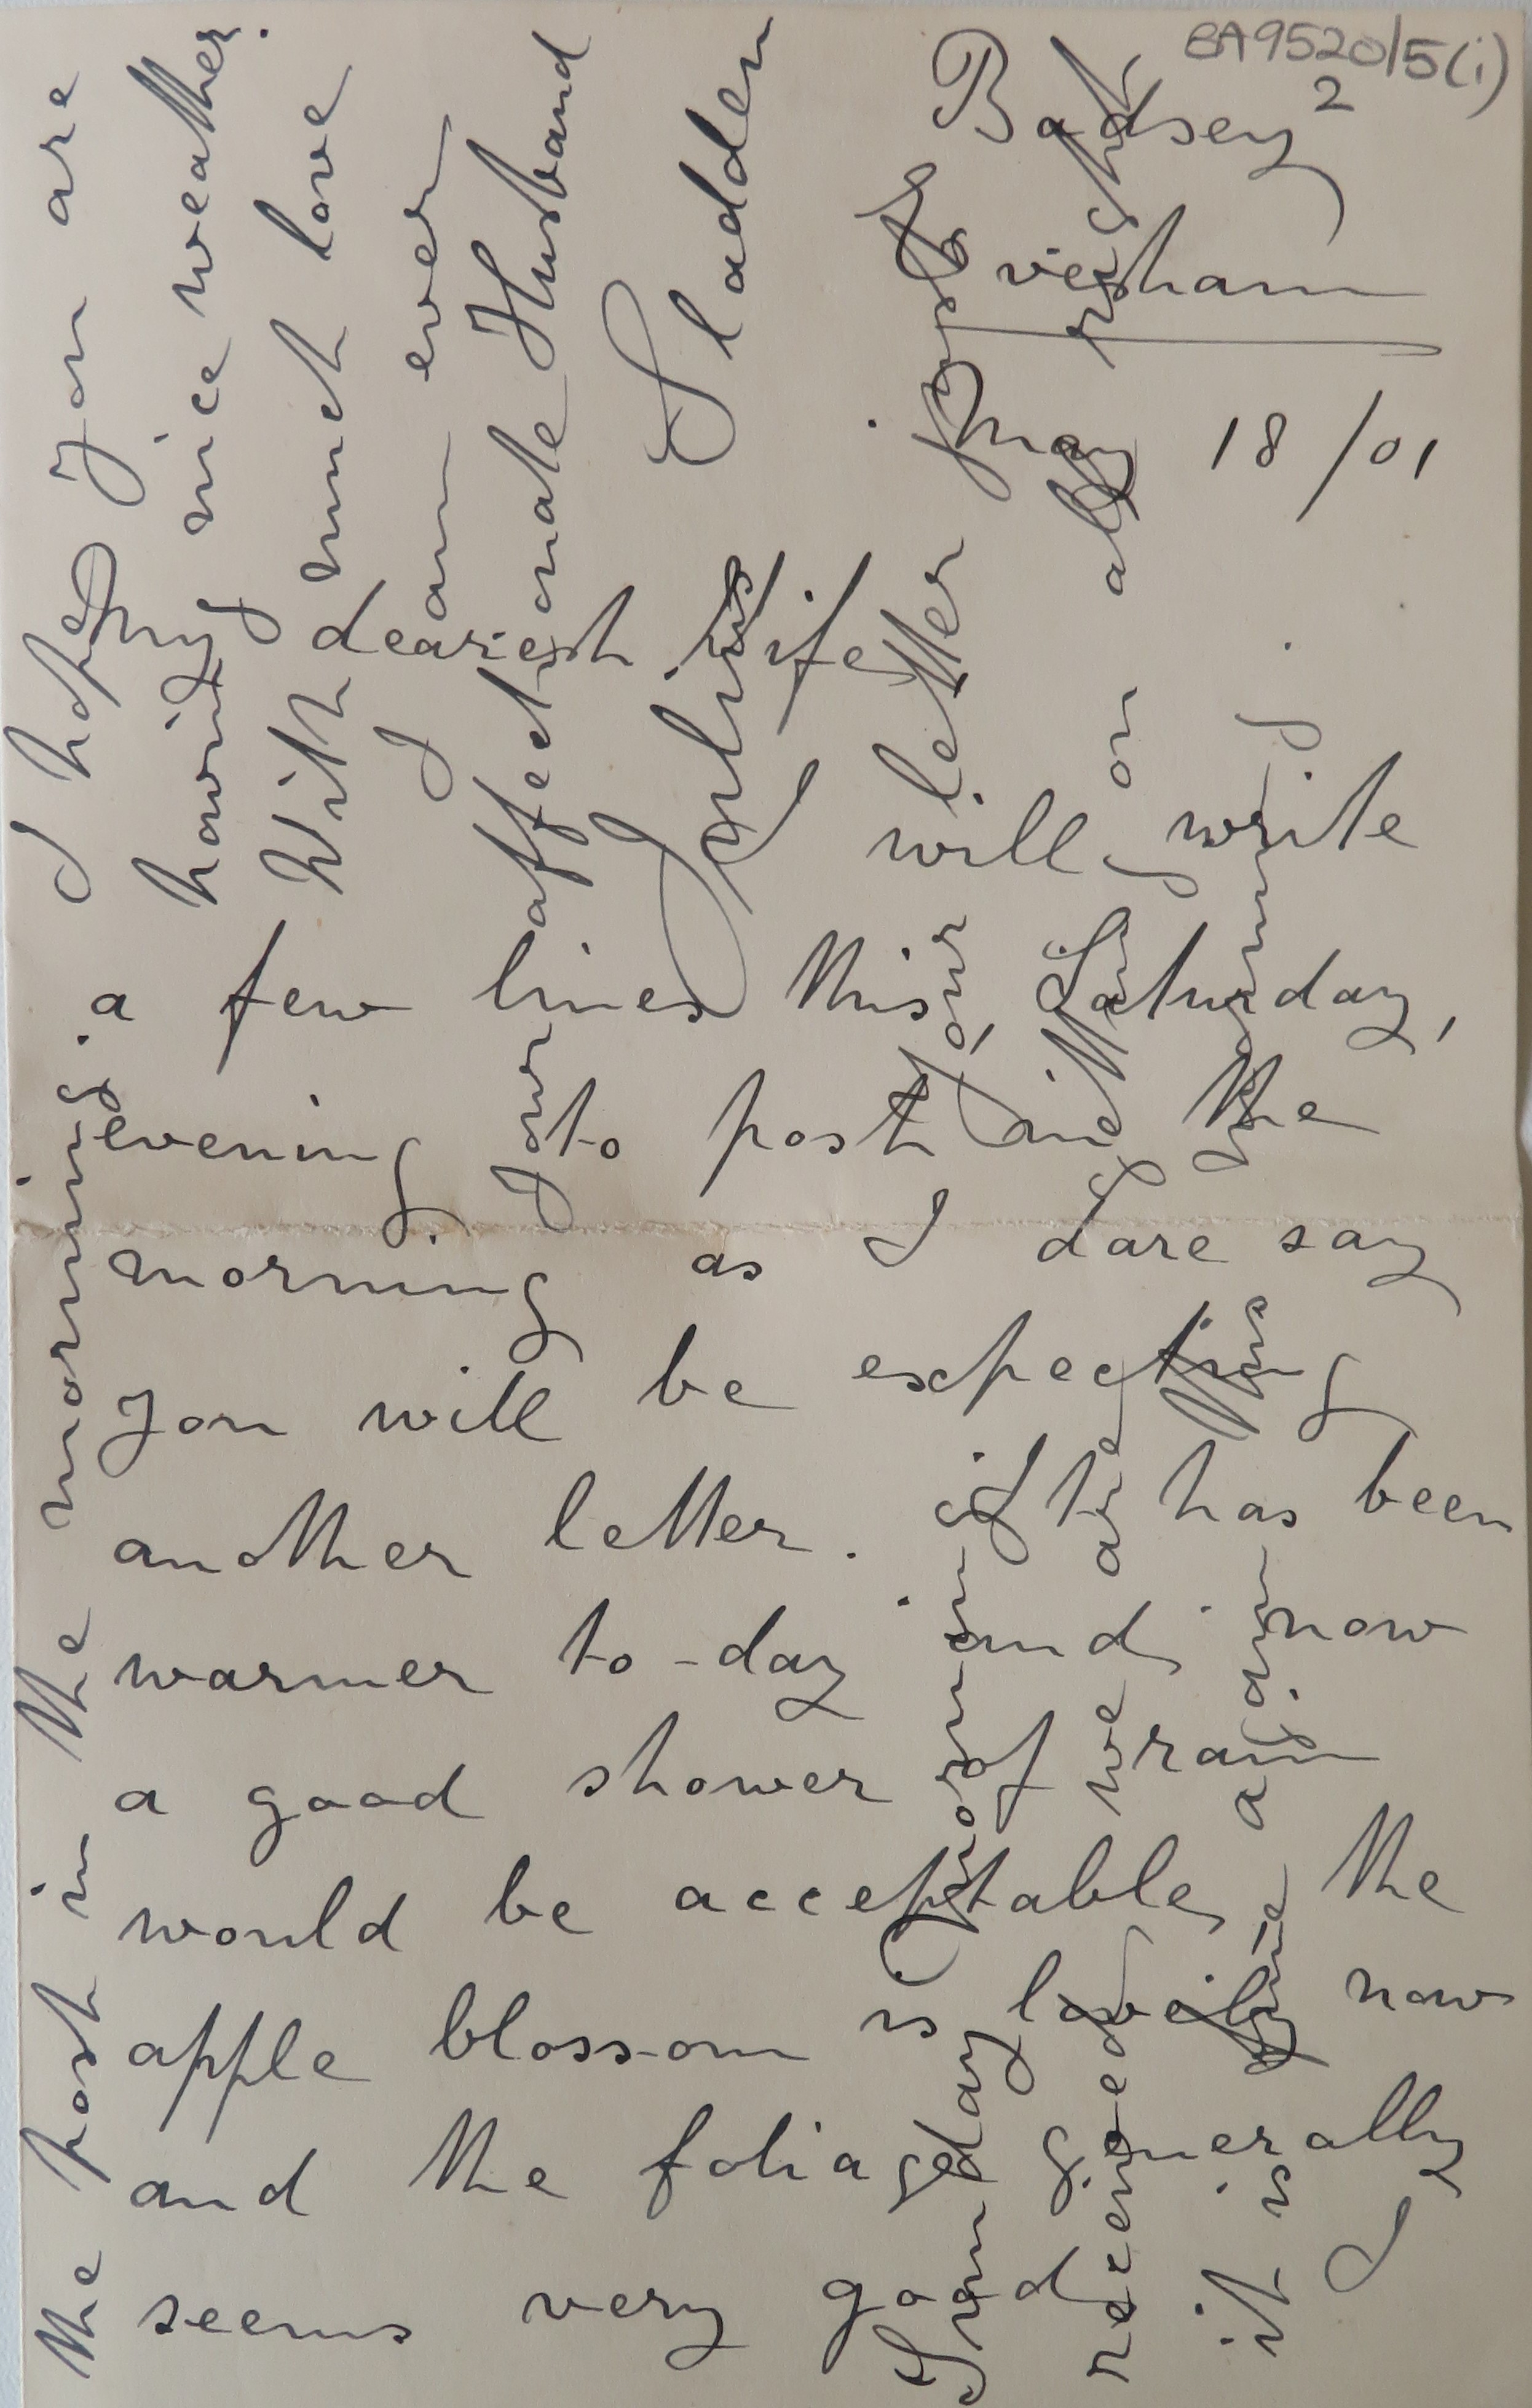 EA9520/5(i)
2
Badsey
Evesham
May 18/01
My dearest Wife
I will write
a few lines this Saturday,
evening to post in the
morning as I dare say
you will be expecting
another letter. It has been
warmer to-day and now
a good shower of rain
would be acceptable, the
apple blossom is lovely now
and the foliage generally
seems very good
the post in the morning. I hope you are
having nice weather.
With much love
I am ever
your affectionate Husband
Julius Sladden
Sunday morning. Your letter just
received we are getting on all right
it is fine again this morning.
I